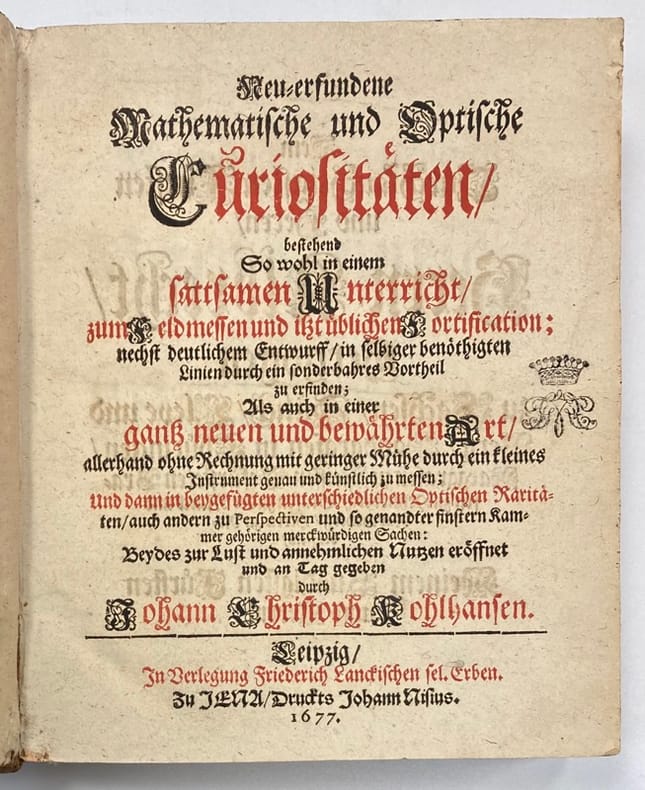 Neu-erfundene
Mathematische und Optische
Cůriositäten/
bestehend
So wohl in einem
sattsamen Unterricht/
zum Feldmessen und itzt üblichen Fortification;
nechst deutlichem Entwurff/in selbiger benöthigten
Linien durch ein sonderbahres Vortheil
zu erfinden;
Als auch in einer
gantz neuen und bewährten Art/
allerhand ohne Rechnung mit geringer Mühe durch ein kleines
Instrument genau und künstlich zu messen;
Und dann in beygefügten unterschiedlichen Optischen Raritä-
ten/auch andern zu Perspectiven und so genandter finstern Kam-
mer gehörigen merckwürdigen Sachen:
Beydes zur Lust und annehmlichen Nutzen eröffnet
und an Tag gegeben
durch
Johann Christoph Kohlhansen.
Leipzig/
In Verlegung Friederich Lanckischen sel. Erben.
Zu JENA/Druckts Johann Nisius.
1677.